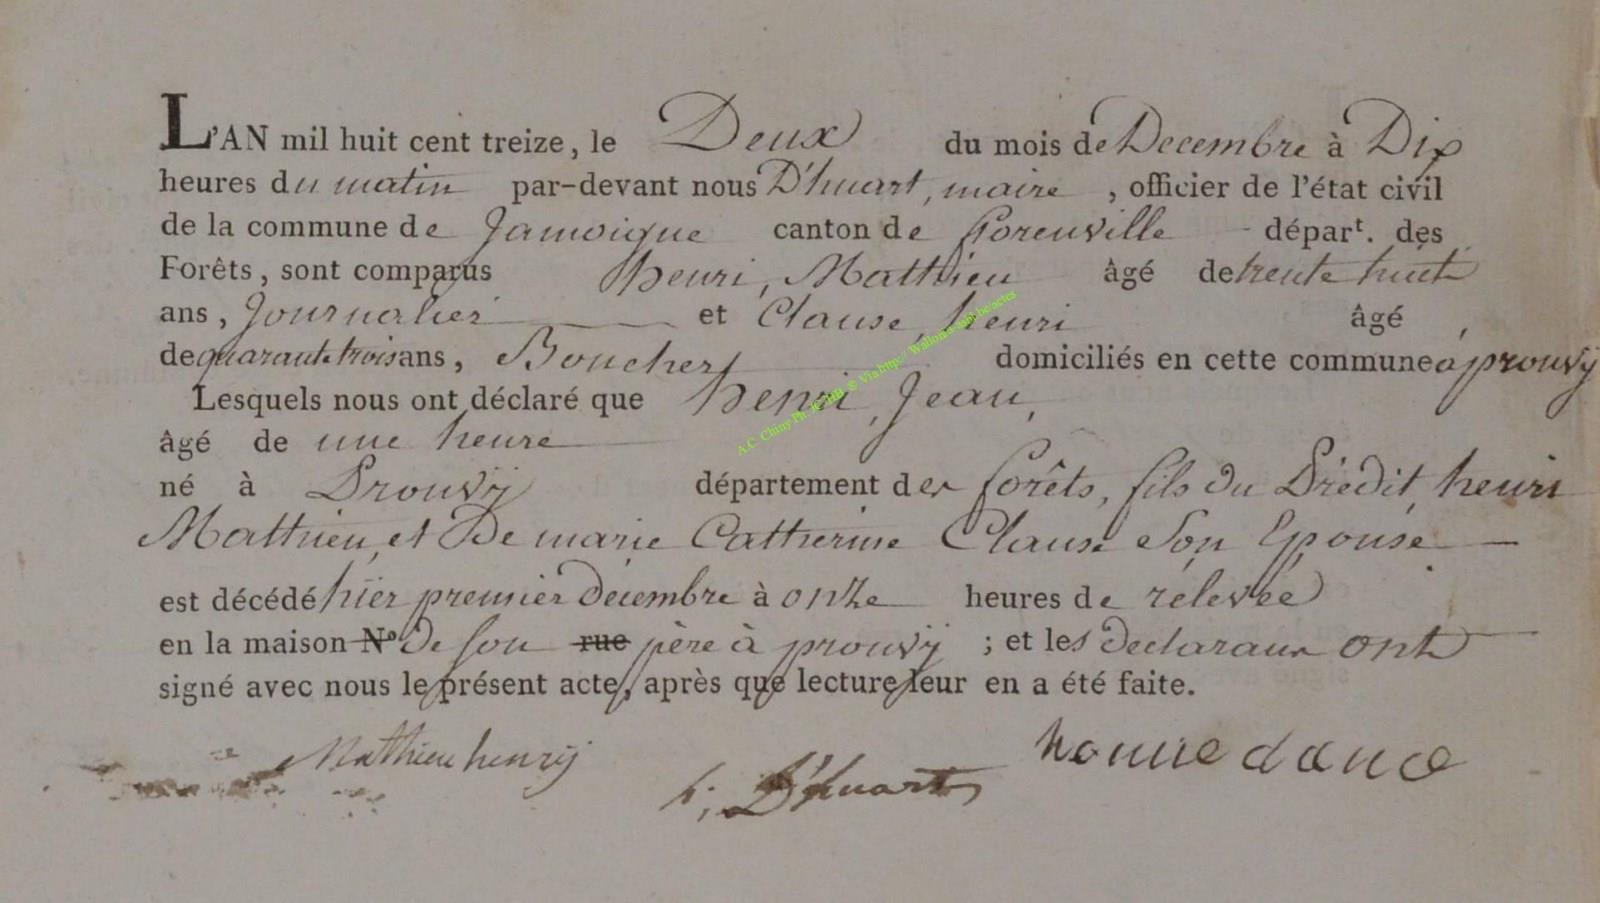 L'AN mil huit cent treize, le Deux du mois de Decembre à Dix
heures du matin par-devant nous D'huart, maire, officier de l'état civil
de la commune de Jamoigne canton de florenville départ. des
Forêts, sont comparus henri, Mathieu âgé de trente huit
ans, Journalier et Clause, henri âgé
de quarante trois ans, Boucher, domiciliés en cette commune à prouvÿ
Lesquels nous ont déclaré que henri, Jean,
âgé de une heure
né à Prouvÿ département des forêts, fils du Prédit, henri
Mathieu, et De marie Catherine Clause Son Epouse
est décédé hïer premier décembre à onze heures de rélevée
en la maison N° de son rue père à prouvÿ ; et les declarans ont
signé avec nous le présent acte, après que lecture leur en a été faite.
Mathieu henrÿ
h; D'huart
A.C. Chiny Ph. JCHB © Via http://